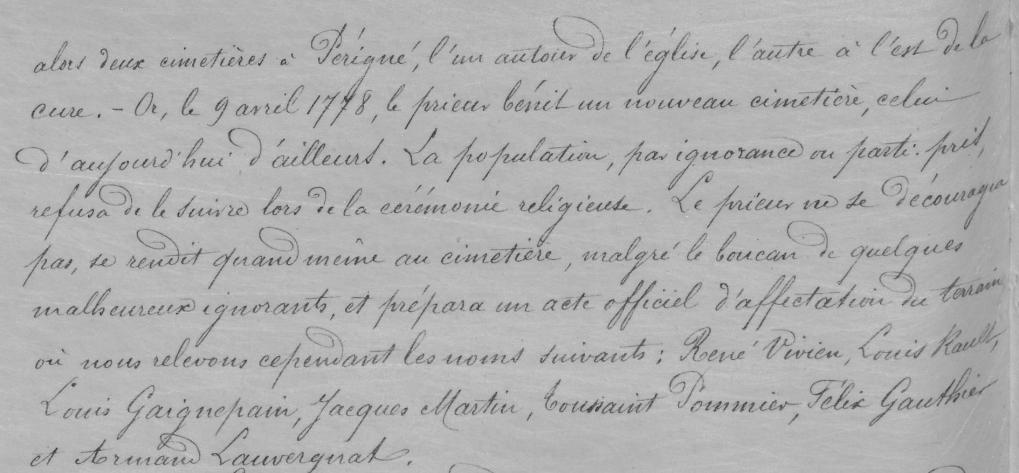 alors deux cimetières à Périgné, l'un autour de l'église, l'autre à l'est de la
cure. – Or, le 9 avril 1778, le prieur bénit un nouveau cimetière, celui
d'aujourd'hui d'ailleurs. La population, par ignorance ou parti-pris,
refusa de le suivre lors de la cérémonie religieuse. Le prieur ne se découragea
pas, se rendit quand même au cimetière, malgré le boucan de quelques
malheureux ignorants, et prépara un acte officiel d'affectation du terrain
où nous relevons cependant les noms suivants : René Vivien, Louis Rault,
Louis Gaignepain, Jacques Martin, Toussaint Pommier, Félix Gauthier
et Armand Lauvergnat.